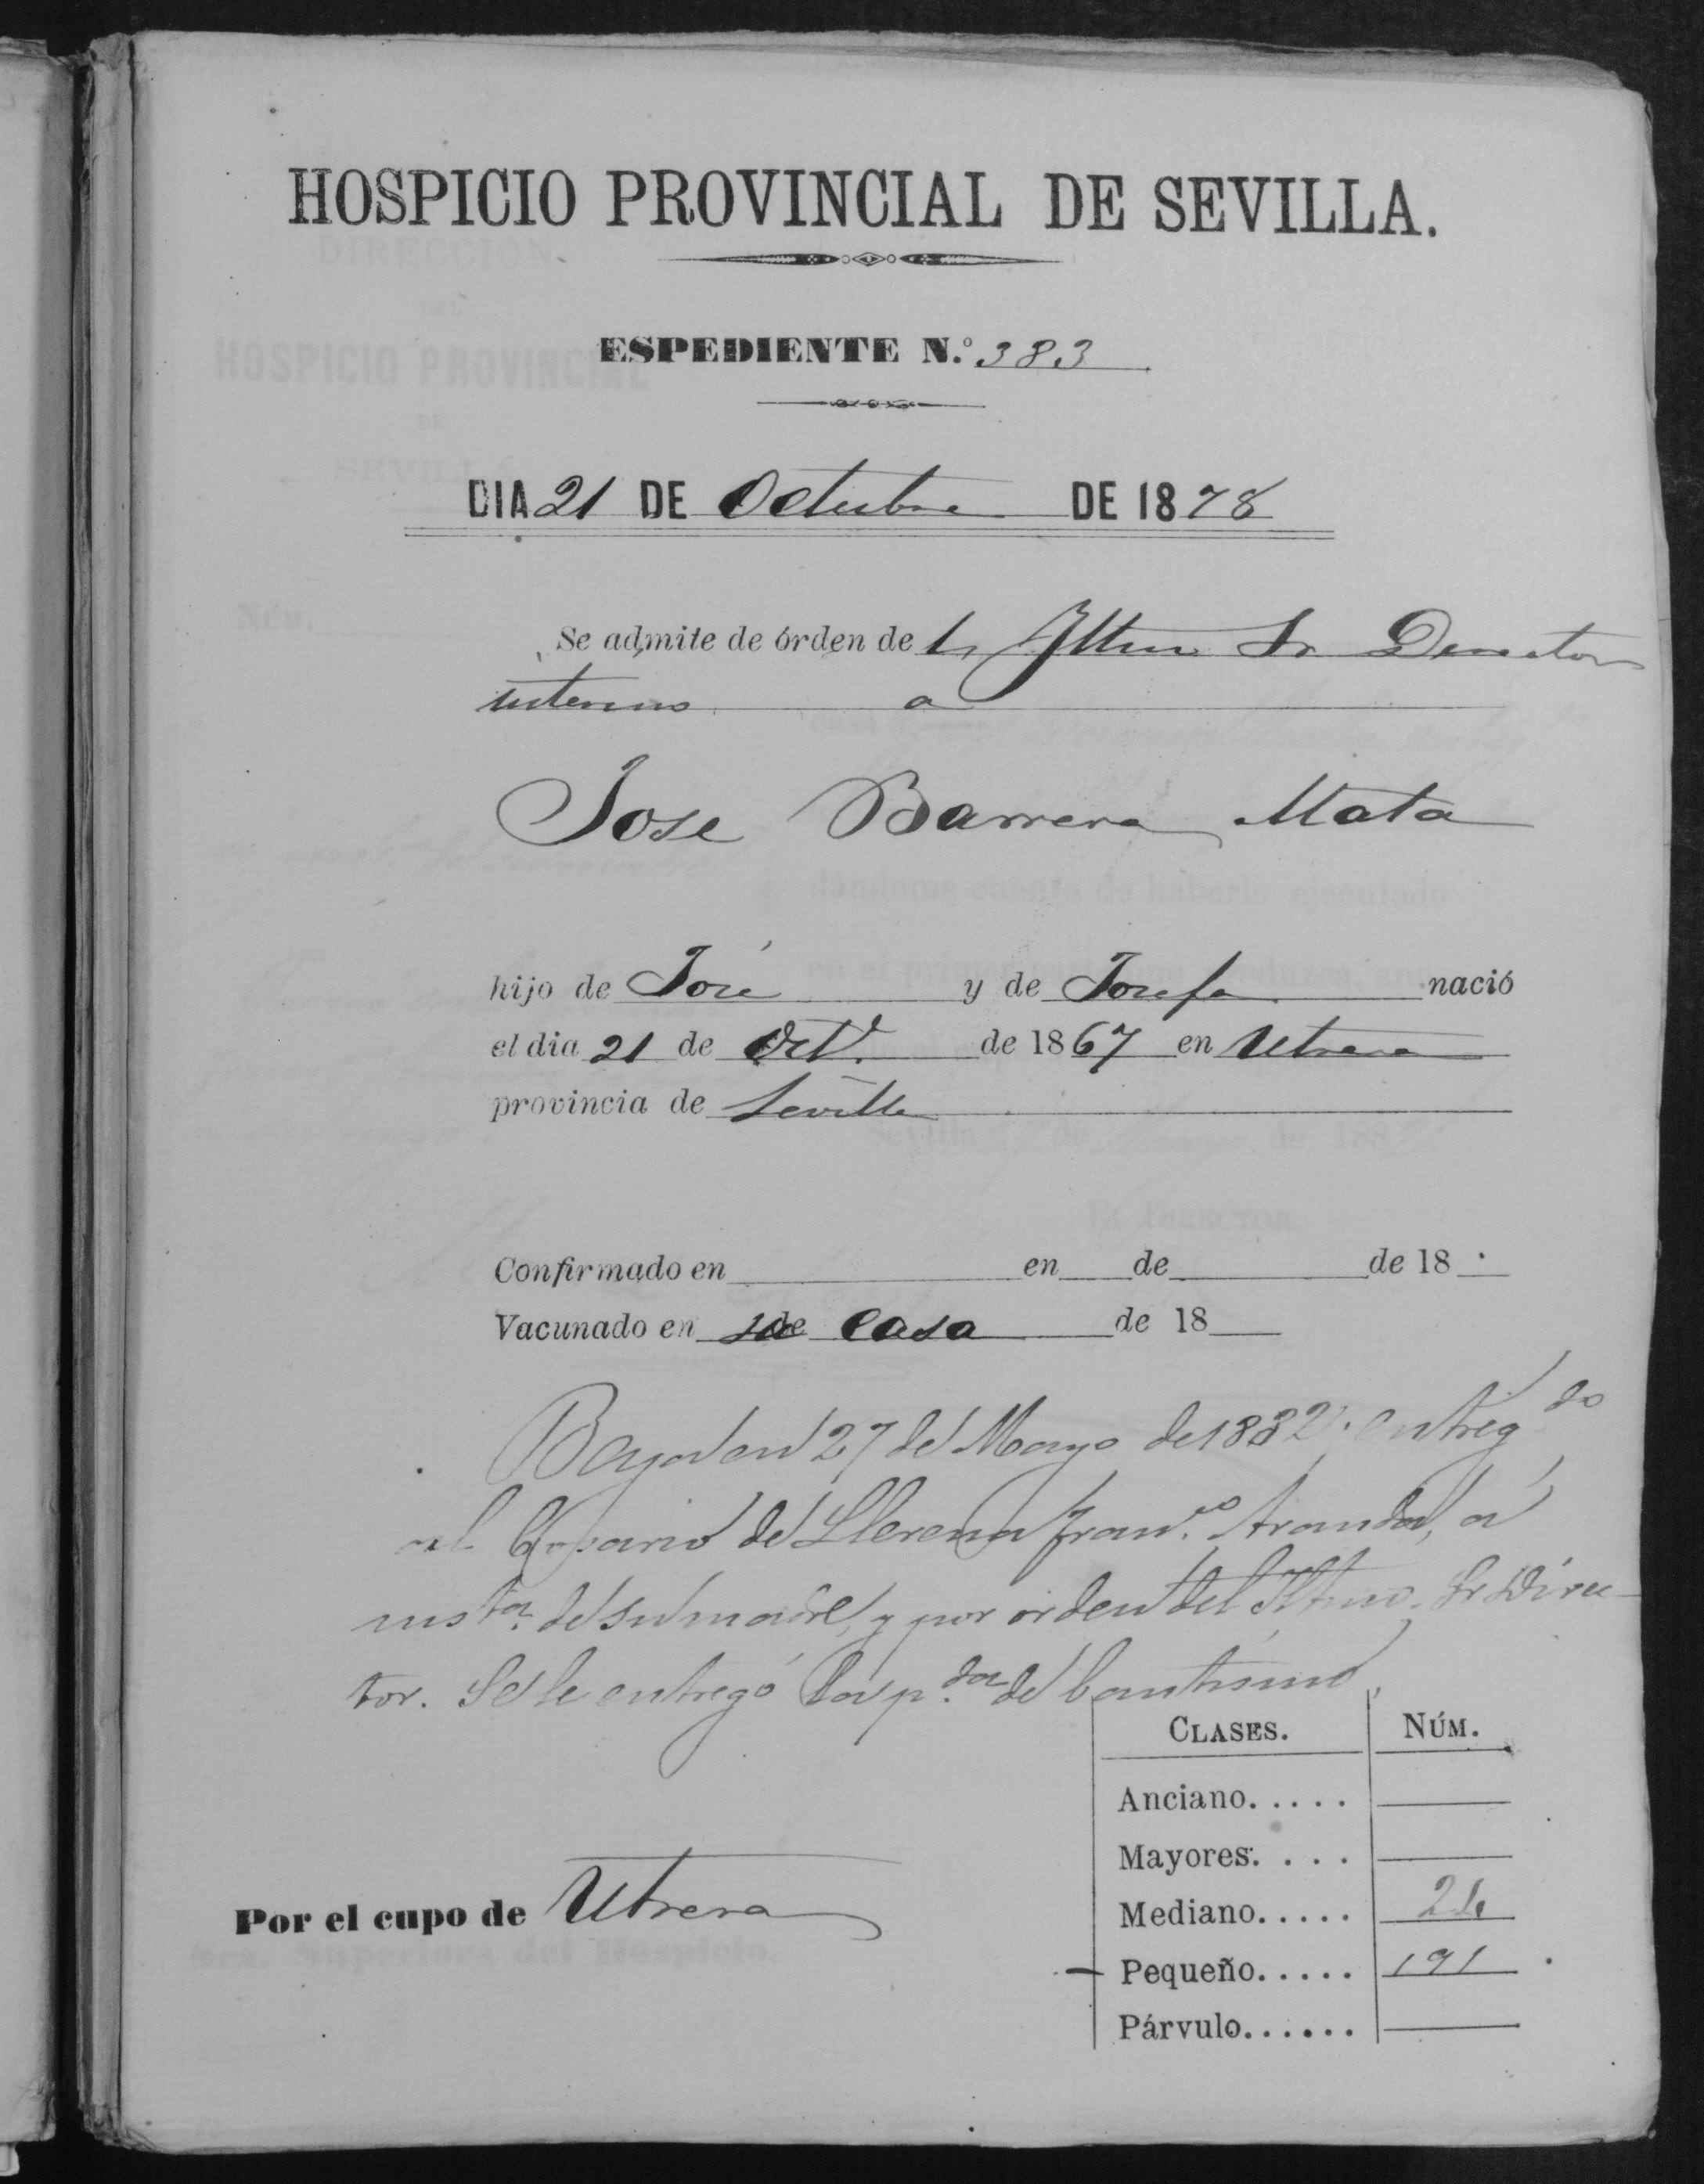 HOSPICIO PROVINCIAL DE SEVILLA.
ESPEDIENTE N.º 383
DIA 21 DE Octubre DE 1878
Se admite de órden del Iltmo Sr Director
interino a
Jose Barrera Mata
hijo de José y de Josefa nació
el dia 21 de Oct.e de 1867 en Utrera
provincia de Sevilla
Confirmado en en de de 18
Vacunado en casa de 18
Baja en 27 de Mayo de 1882; entreg.do
al Cosario de Llerena Fran.co Aranda, á
inst.a de su madre, y por orden del Iltmo. Sr Direc-
tor. Se le entregó la p.da de bautismo.
CLASES. NÚM.
Anciano.....
Mayores....
Mediano.....
Pequeño..... 191
Párvulo......
Por el cupo de Utrera